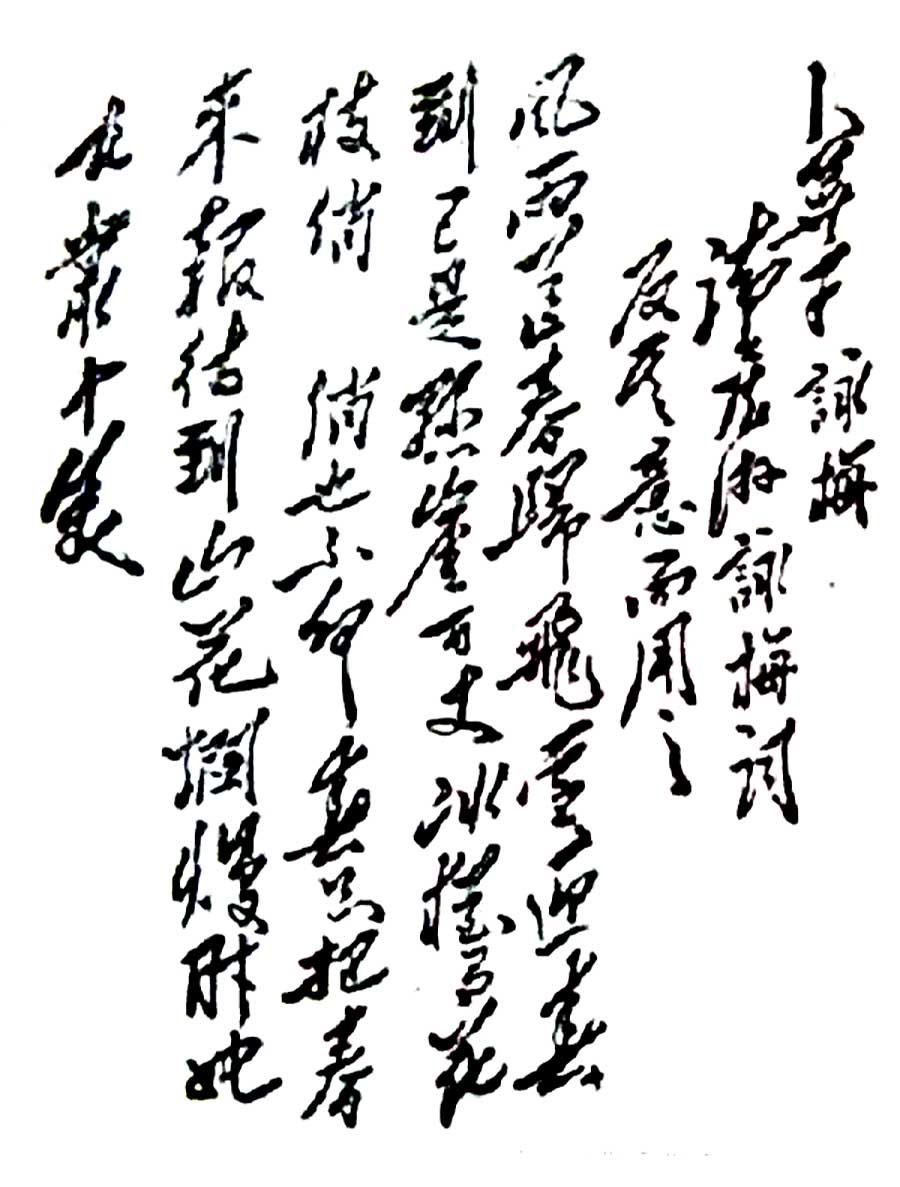 卜算子 詠梅
讀陸游詠梅詞
反其意而用之
風雨送春歸飛雪迎春
到已是懸崖百丈冰猶有花
枝俏 俏也不爭春只把春
來報待到山花爛熳時她
在叢中笑